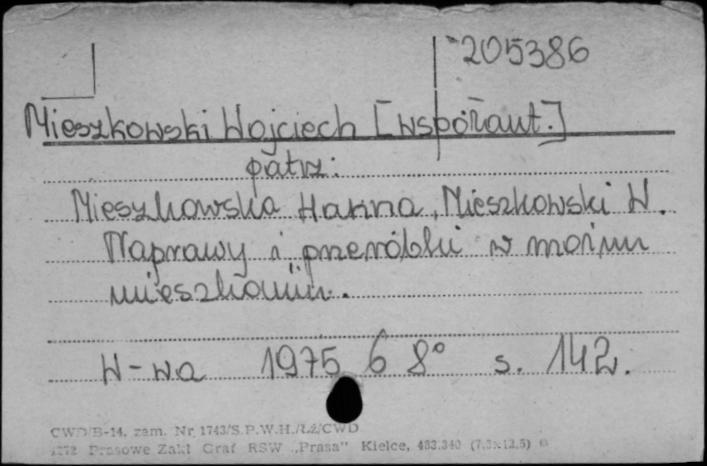 205386
Mieszkowski Wojciech [współaut.]
patrz:
Mieszkowska Hanna, Mieszkowski W.
Naprawy i przeróbki w moim
mieszkaniu.
W-wa 1975 6 8° s. 142.
CWD/B-14. zam. Nr 1743/S.P.W.H./Łź/CWD
Prasowe Zakł Graf RSW „Prasa" Kielce,